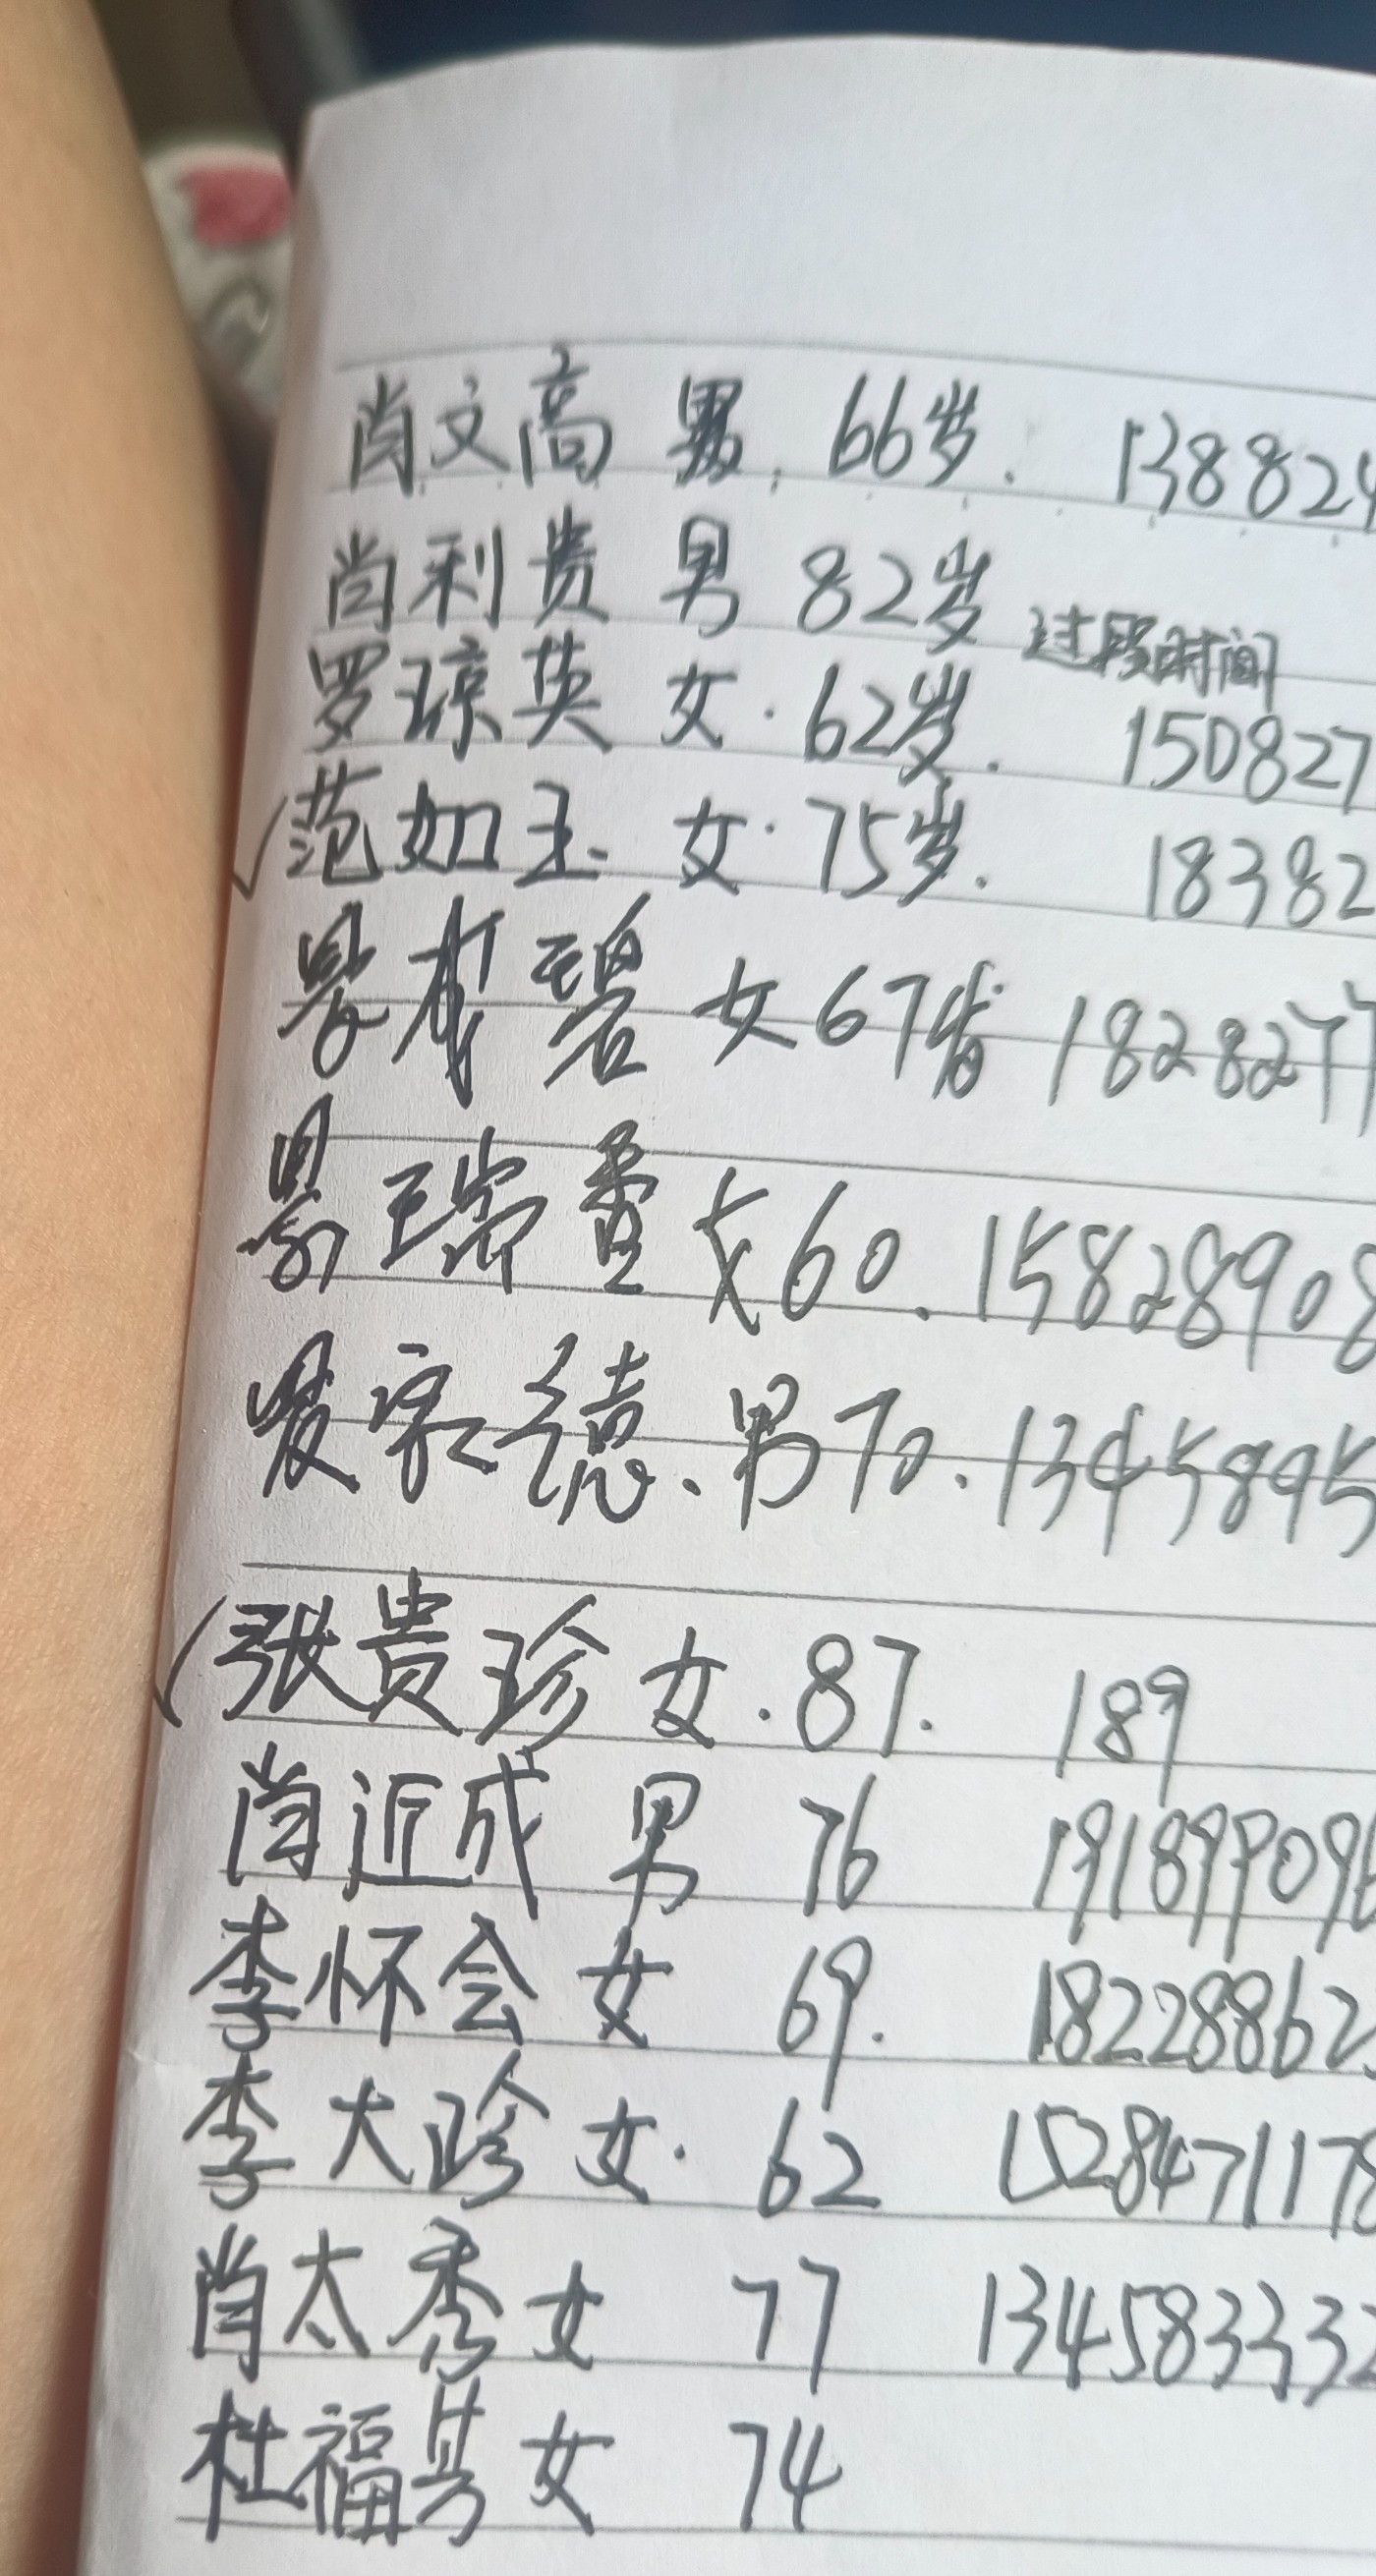 肖文高 男. 66岁. 138824
肖利贵 男 82岁 过段时间
罗琼英 女. 62岁. 150827
√范如玉 女. 75岁. 18382
碧 女 67岁 1828277
瑞 女 60. 15828908
德. 男 70. 1345895
√张贵珍 女. 87. 189
肖近成 男 76 191899096
李怀会 女 69. 18228862
李大珍 女. 62 1528471178
肖太秀 女 77 134583332
杜福芬 女 74